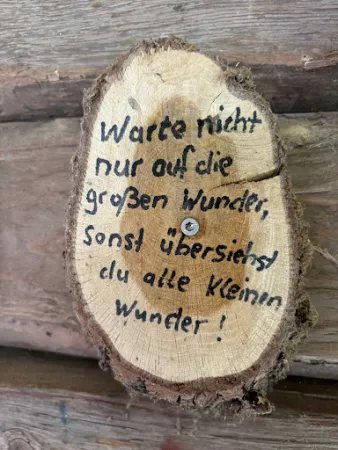 Warte nicht
nur auf die
großen Wunder,
sonst übersiehst
du alle kleinen
Wunder!